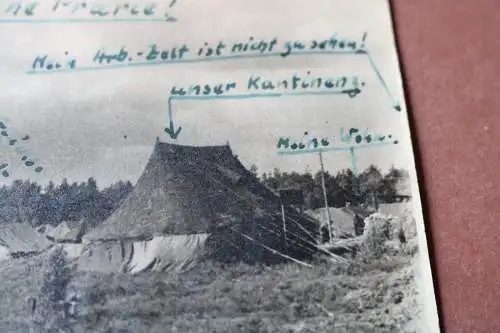 ne Prärie!
Mein Arb.-Zelt ist nicht zu sehen!
unser Kantinenz.
Meine Wohn.